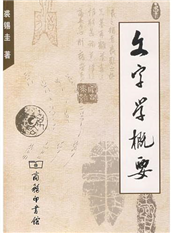 文字学概要
裘锡圭 著
商务印书馆